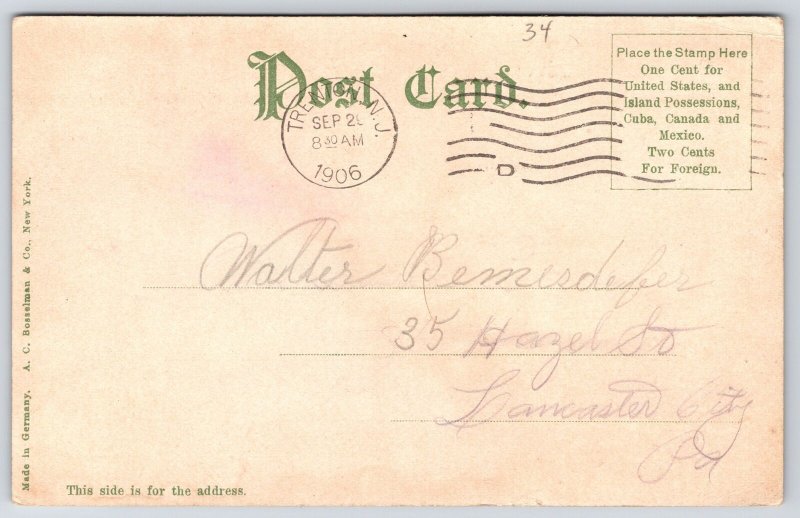 34
Post Card.
Place the Stamp Here
One Cent for
United States, and
Island Possessions,
Cuba, Canada and
Mexico.
Two Cents
For Foreign.
TRENTON, N.J.
SEP
8 30 AM
1906
D
Walter Bemesdefer
35 Hazel St
Lancaster City
Pa
Made in Germany. A. C. Bosselman & Co., New York.
This side is for the address.